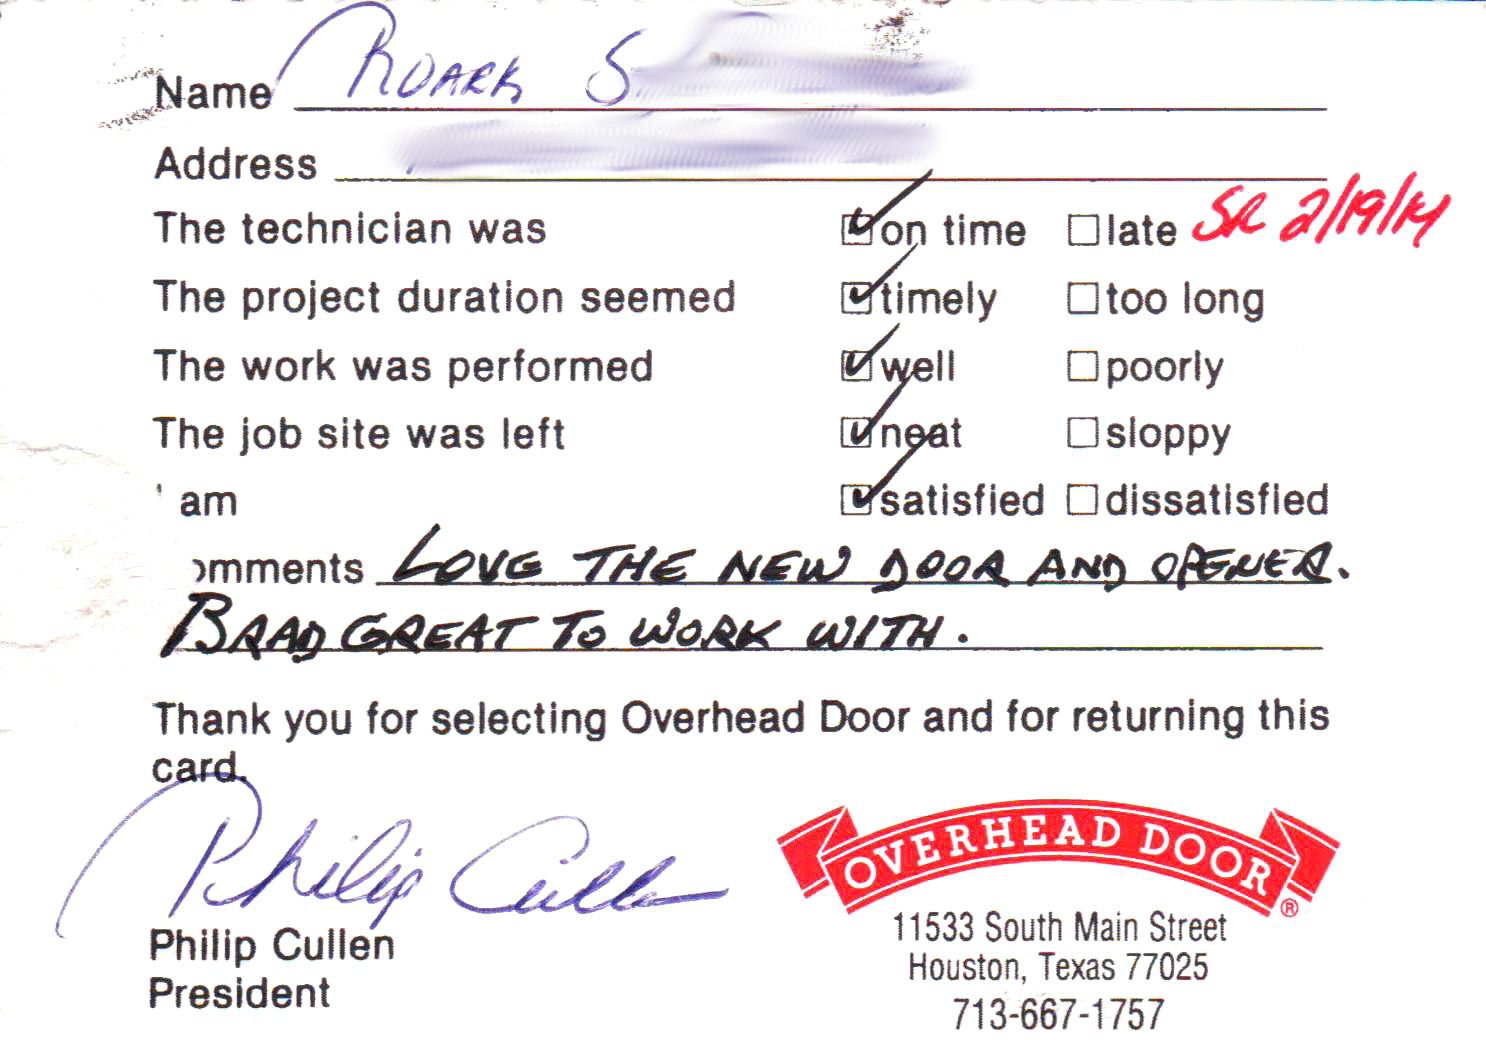 Name Roark S
Address
The technician was on time late SR 2/19/14
The project duration seemed timely too long
The work was performed well poorly
The job site was left neat sloppy
I am satisfied dissatisfied
omments LOVE THE NEW DOOR AND OPENER.
BRAD GREAT TO WORK WITH.
Thank you for selecting Overhead Door and for returning this
card.
Philip Cullen
Philip Cullen
President
OVERHEAD DOOR®
11533 South Main Street
Houston, Texas 77025
713-667-1757